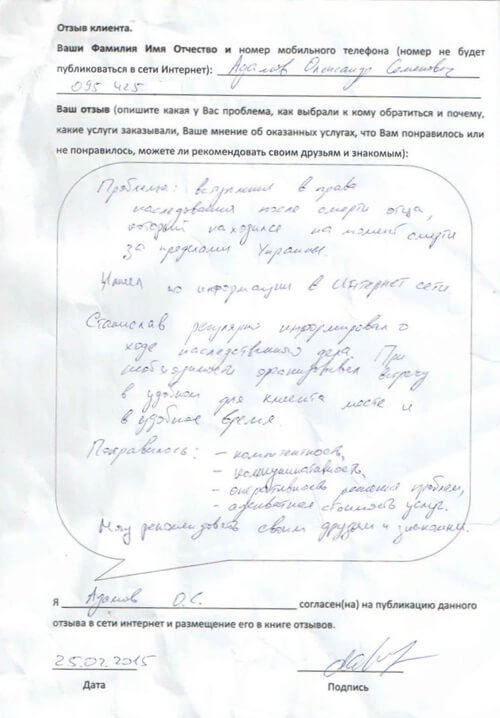 Отзыв клиента.
Ваши Фамилия Имя Отчество и номер мобильного телефона (номер не будет
публиковаться в сети Интернет): Адамов Олександр Семенович
095 425
Ваш отзыв (опишите какая у Вас проблема, как выбрали к кому обратиться и почему,
какие услуги заказывали, Ваше мнение об оказанных услугах, что Вам понравилось или
не понравилось, можете ли рекомендовать своим друзьям и знакомым):
Проблема: вступления в права
наследования после смерти отца,
который находился на момент смерти
за пределами Украины.
по информации в Интернет сети
Станислав регулярно информировал о
ходе наследственного дела. При
необходимости организовывал встречу
в удобном для клиента месте и
в удобное время.
Понравилось: - компетентность,
- коммуникативность,
- оперативность решения проблем,
- адекватная стоимость услуг.
Могу рекомендовать своим друзьям и знакомым.
Я Адамов О.С. согласен(на) на публикацию данного
отзыва в сети интернет и размещение его в книге отзывов.
25.02.2015
Дата Подпись